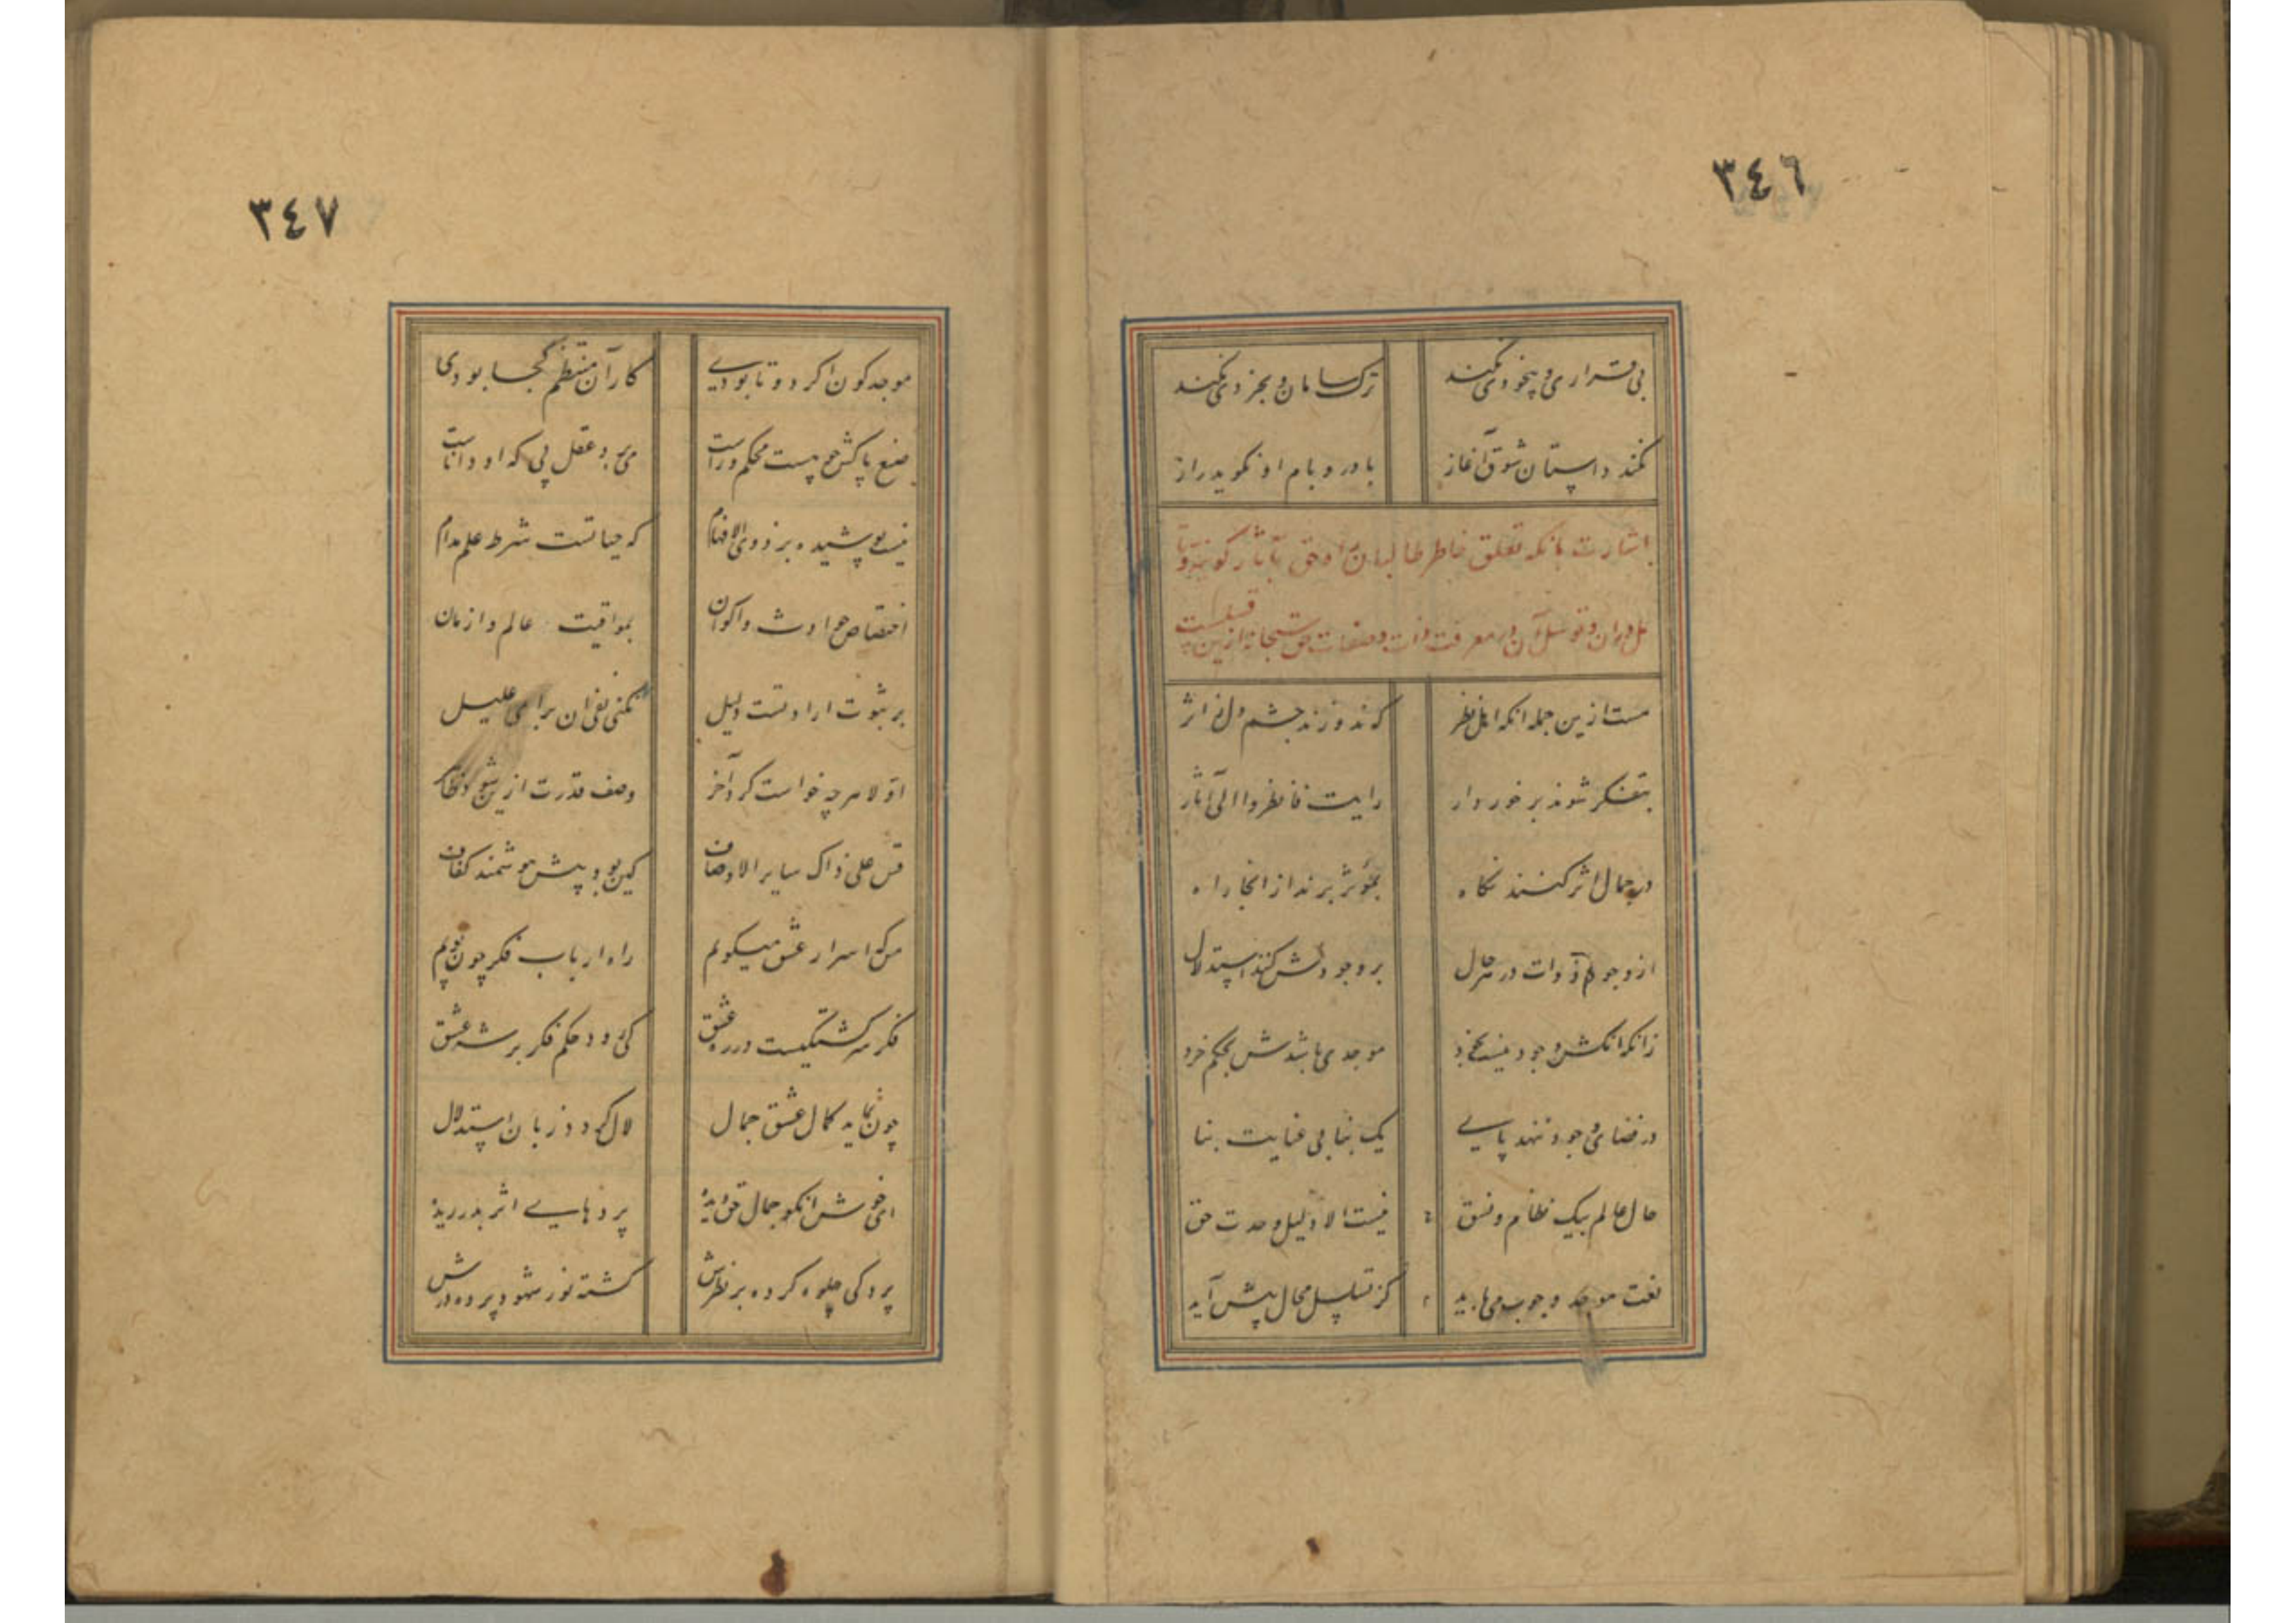 ٣٤٦
بی قراری و بیخودی نکند ترک سامان و بخردی نکند
نکند داستان شوق آغاز با در و بام او نکوید راز
اشارت بانکه تعلق خاطر طالبان راه حق بآثار کونیه و تا
مل دران و توسل آن در معرفت ذات و صفات حق سبحانه ازین قسمست
هست ازین جمله انکه اهل نظر که ندوزند چشم دل ز اثر
بتفکر شوند برخوردار رایت فانظروا الی آثار
در جمال اثر کنند نکاه بمؤثر برند از انجا راه
از وجود ذوات در هر حال بر وجودش کنند استدلال
زانکه انکش وجود نیست بخود موجدی باشدش بحکم خرد
در فضای وجود ننهد پای یک بنا بی عنایت بنا
حال عالم بیک نظام و نسق نیست الا دلیل وحدت حق
نعت موجد وجوب می باید کز تسلسل محال پیش آید
٣٤٧
موجد کون اکر دو تا بودی کار آن منتظم کجا بودی
صنع پاکش چو هست محکم و راست می برد عقل پی که او داناست
نیست پوشیده بر ذوی الافهام که حیاتست شرط علم مدام
اختصاص حوادث و اکوان بمواقیت عالم و ازمان
بر ثبوت ارادتست دلیل نکنی نفی ان برای علیل
اولا هرچه خواست کرد آخر وصف قدرت ازین شود ظاهر
قس علی ذاک سایر الاوصاف کین بود پیش هوشمند کفاف
من که اسرار عشق میکویم راه ارباب فکر چون پویم
فکر سرکشتکیست در ره عشق کی رود حکم فکر بر شه عشق
چون نماید کمال عشق جمال لال کردد زبان استدلال
ای خوش انکو جمال حق دیده پردهایی اثر بدریده
پردکی جلوه کرده بر نظرش کشته نور شهود پرده درش